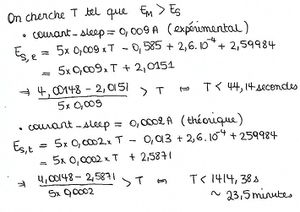 On cherche T tel que E_M > E_S
• courant-sleep = 0,009 A (expérimental)
E_S,e = 5x 0,009 x T - 0,585 + 2,6.10^-4 + 2,59984
= 5x 0,009 x T + 2,0151
⇒ 4,00148 - 2,0151 / 5x 0,009 > T ⇔ T < 44,14 secondes
• courant-sleep = 0,0002 A (théorique)
E_S,t = 5x 0,0002 x T - 0,013 + 2,6.10^-4 + 259984
= 5x 0,0002 x T + 2,5871
⇒ 4,00148 - 2,5871 / 5x 0,0002 > T ⇔ T < 1414,38s
~ 23,5 minutes